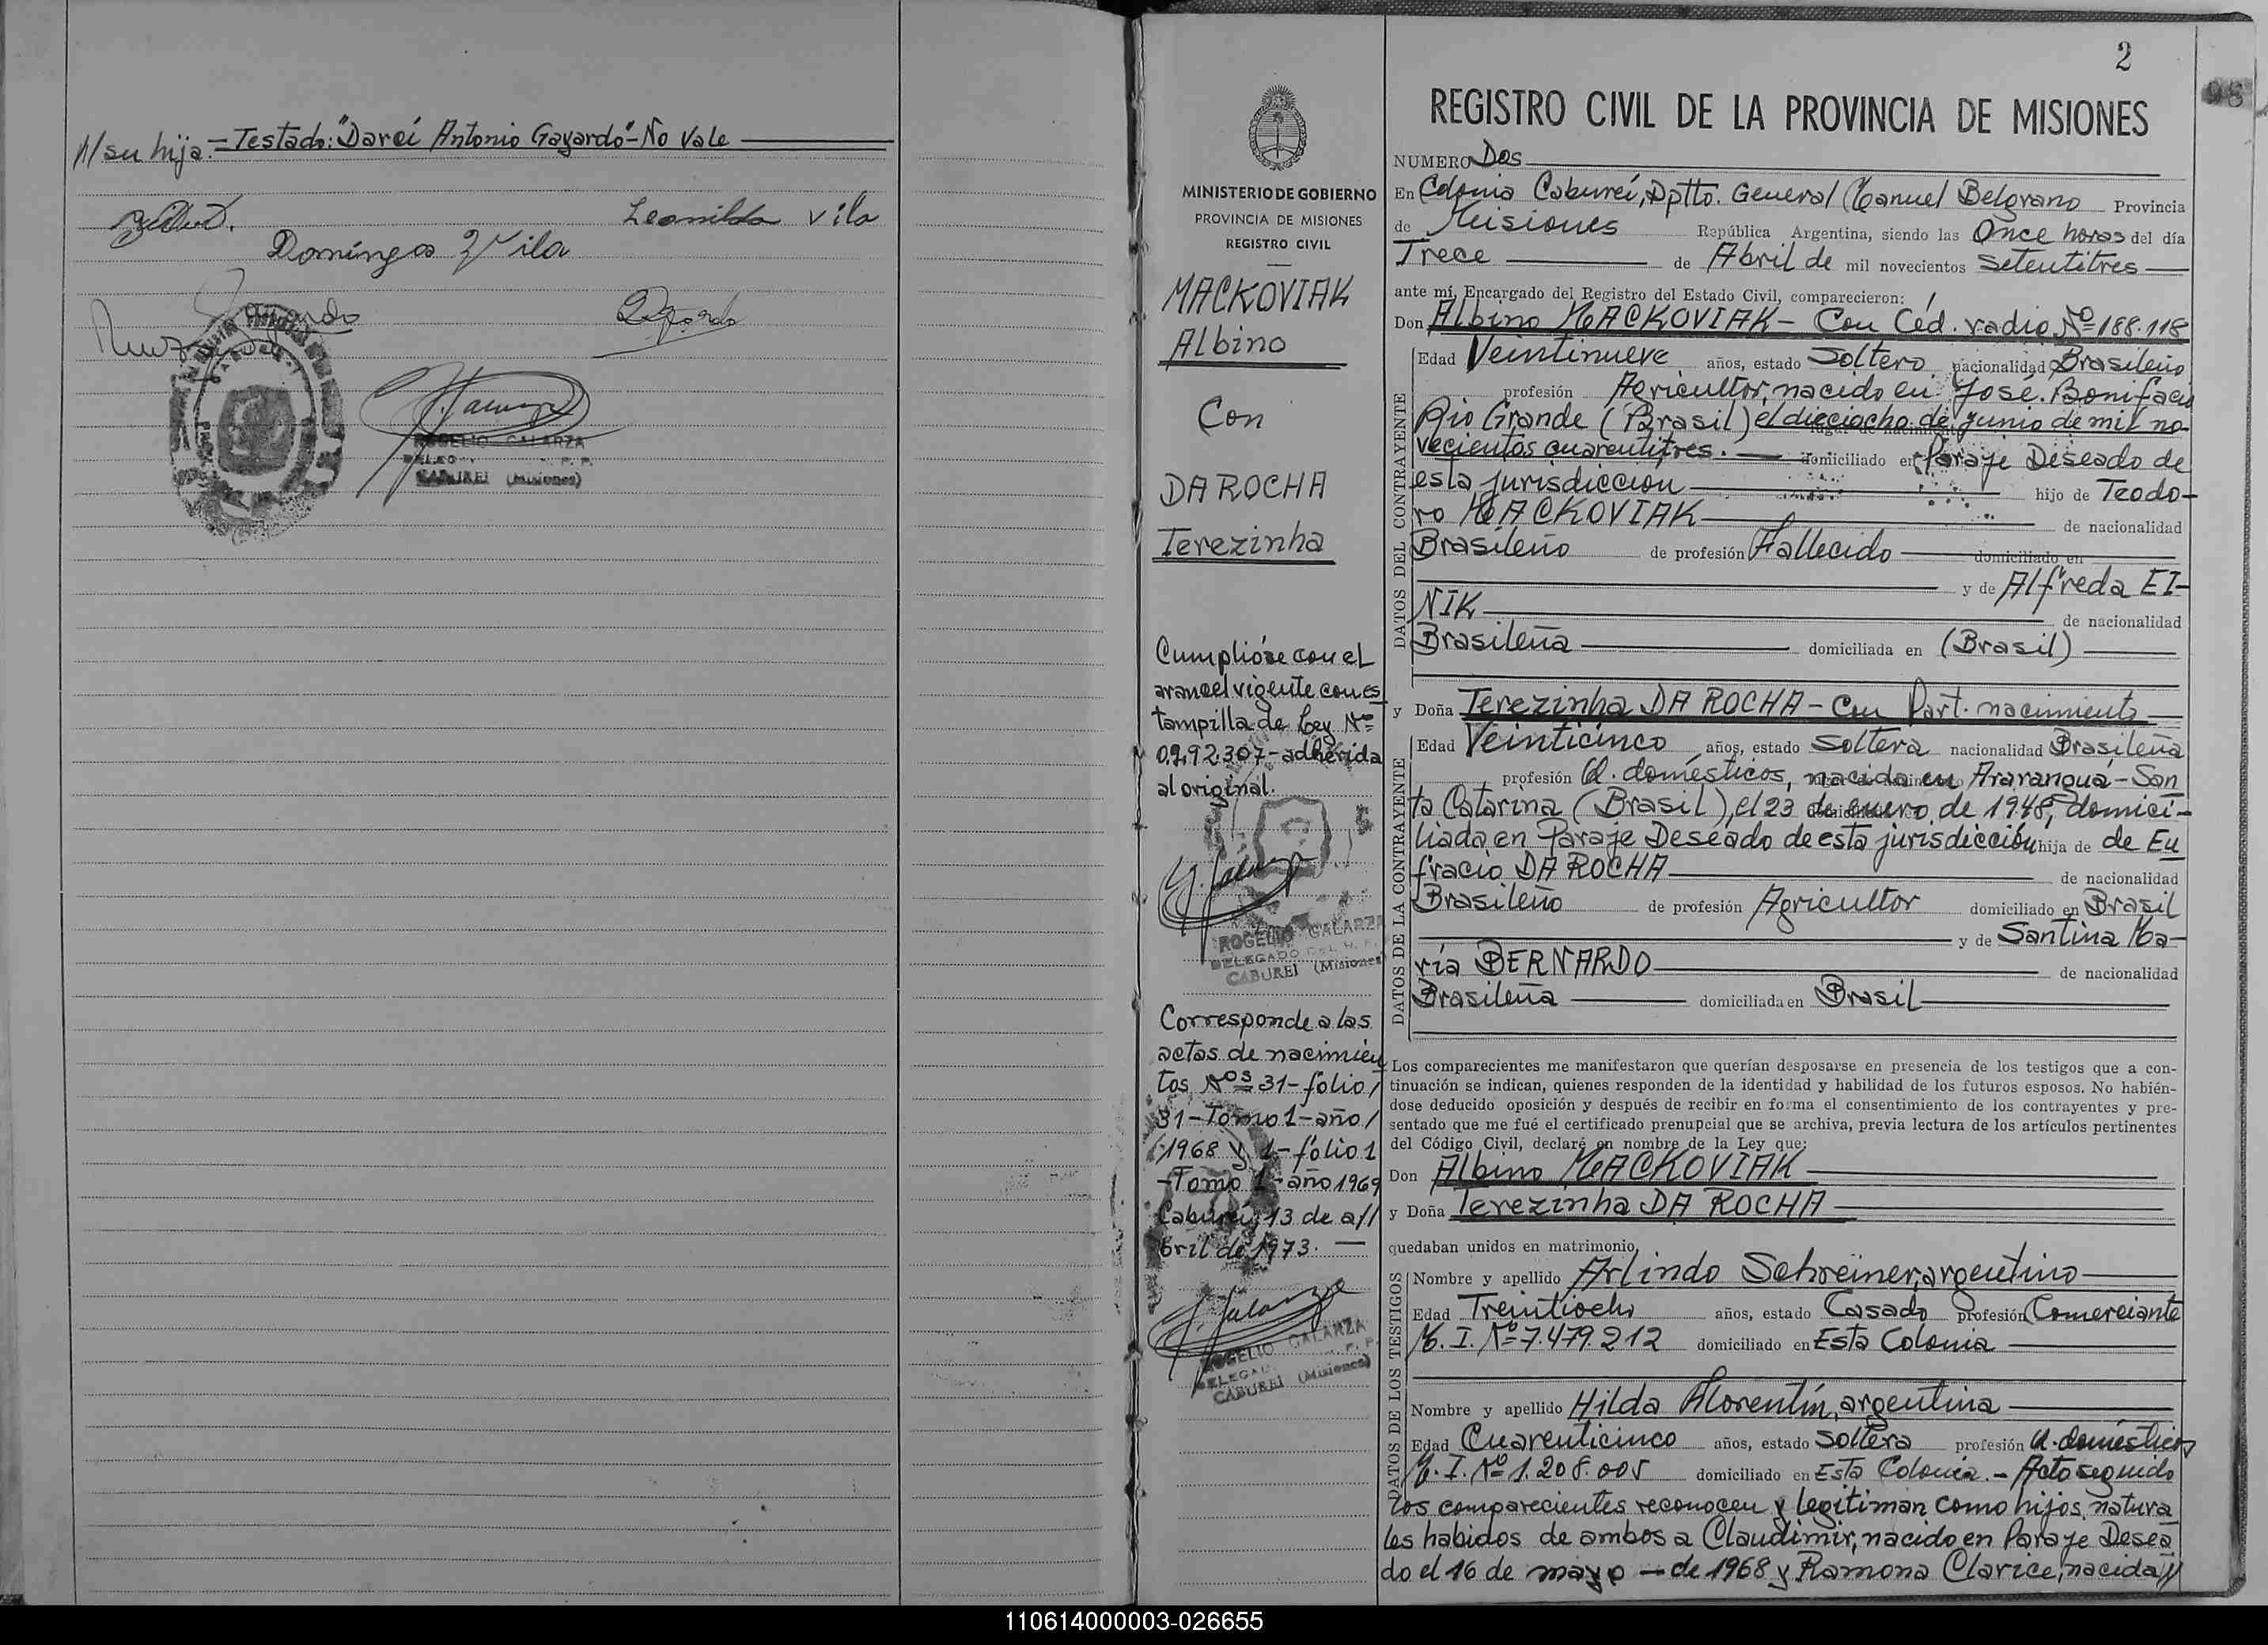 // su hija.=Testado:"Darci Antonio Gayardo"-No Vale
Leonilda Vila
Domingos Vila
ROGELIO GALARZA
CABUREI (Misiones)
2
98
REGISTRO CIVIL DE LA PROVINCIA DE MISIONES
MINISTERIO DE GOBIERNO
PROVINCIA DE MISIONES
REGISTRO CIVIL
MACKOVIAK
Albino
Con
DA ROCHA
Terezinha
Cumplióse con el
arancel vigente con es
tampilla de Ley Nº
0.9.92.307-adherida
al original.
ROGELIO GALARZA
DELEGADO DEL R. P.
CABUREI (Misiones)
Corresponde a las
actas de nacimien
tos Nos 31-folio/
31-Tomo 1-año/
1968 y 1-folio 1
-Tomo 1-año 1969
Caburei, 13 de a//
bril de 1973.—
ROGELIO GALARZA
CABUREI (Misiones)
NUMERO Dos
En Colonia Caburei, Dptto. General Manuel Belgrano Provincia
de Misiones República Argentina, siendo las Once horas del día
Trece de Abril de mil novecientos setentitres
ante mí, Encargado del Registro del Estado Civil, comparecieron:
Don Albino MACKOVIAK - Con Ced. radio Nº 188.118
DATOS DEL CONTRAYENTE
Edad Veintinueve años, estado Soltero nacionalidad Brasileño
profesión Agricultor, nacido en José Bonifacio
Rio Grande (Brasil) el dieciocho de junio de mil no-
vecientos cuarentitres.— domiciliado en Paraje Deseado de
esta jurisdiccion hijo de Teodo-
ro MACKOVIAK de nacionalidad
Brasileño de profesión Fallecido domiciliado en
y de Alfreda EI-
NIK de nacionalidad
Brasileña domiciliada en (Brasil)
y Doña Terezinha DA ROCHA - Con Part. nacimiento
DATOS DE LA CONTRAYENTE
Edad Veinticinco años, estado Soltera nacionalidad Brasileña
profesión Q. domésticos, nacida en Araranguá-San
ta Catarina (Brasil), el 23 de enero de 1948, domici-
liada en Paraje Deseado de esta jurisdicción hija de de Eu
fracio DA ROCHA de nacionalidad
Brasileño de profesión Agricultor domiciliado en Brasil
y de Santina Ma-
ria BERNARDO de nacionalidad
Brasileña domiciliada en Brasil
Los comparecientes me manifestaron que querían desposarse en presencia de los testigos que a con-
tinuación se indican, quienes responden de la identidad y habilidad de los futuros esposos. No habién-
dose deducido oposición y después de recibir en forma el consentimiento de los contrayentes y pre-
sentado que me fué el certificado prenupcial que se archiva, previa lectura de los artículos pertinentes
del Código Civil, declaré en nombre de la Ley que:
Don Albino MACKOVIAK
y Doña Terezinha DA ROCHA
quedaban unidos en matrimonio
DATOS DE LOS TESTIGOS
Nombre y apellido Arlindo Schreiner, argentino
Edad Treintiocho años, estado Casado profesión Comerciante
M. I. Nº 7.479.212 domiciliado en Esta Colonia
Nombre y apellido Hilda Florentín, argentina
Edad Cuarenticinco años, estado Soltera profesión Q. domésticos
M. I. Nº 1.208.005 domiciliado en Esta Colonia.- Acto seguido
los comparecientes reconocen y legitiman como hijos natura
les habidos de ambos a Claudimir, nacido en Paraje Desea
do el 16 de mayo — de 1968 y Ramona Clarice, nacida//
110614000003-026655